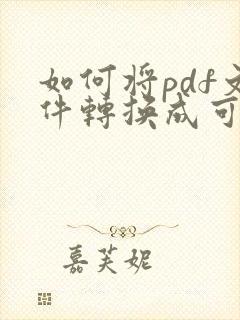 如何将pdf文
件轉換成可
嘉芙妮